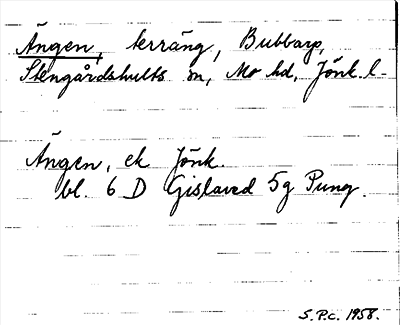 Ängen, terräng, Bubbarp,
Stengårdshults sn, Mo hd, Jönk. l-
Ängen, ek Jönk.
bl. 6 D Gislaved 5g Pung.
S.P.c. 1958.